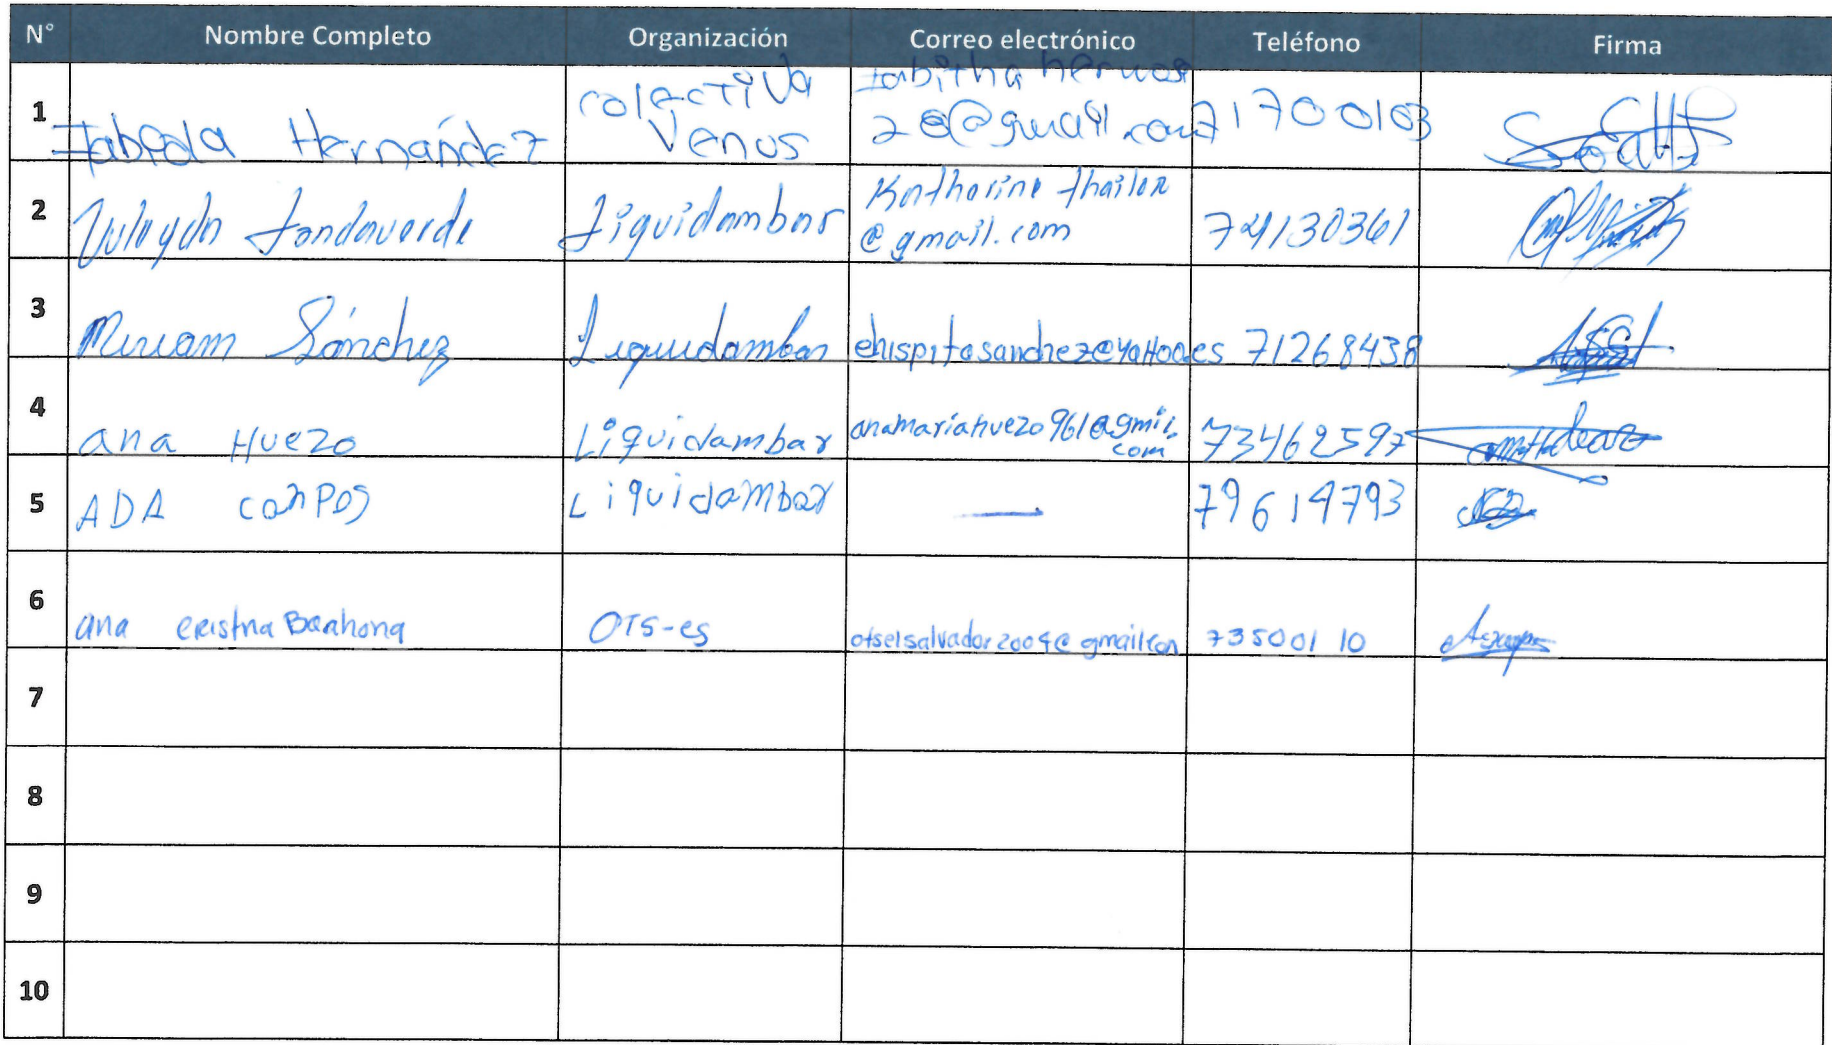 N° Nombre Completo Organización Correo electrónico Teléfono Firma
1 Hernández colectiva Venus 28@gmail.com 71700103
2 Liquidambar @gmail.com 74130361
3 Miriam Sánchez Liquidambar chispitasanchez@yaHoo.es 71268438
4 ana Huezo Liquidambar anamariahuezo961@gmil.com 73462597
5 ADA camPos Liquidambar — 79619793
6 ana cristna Barahona OTS-es otselsalvador2004@gmailcon 73500110
7
8
9
10